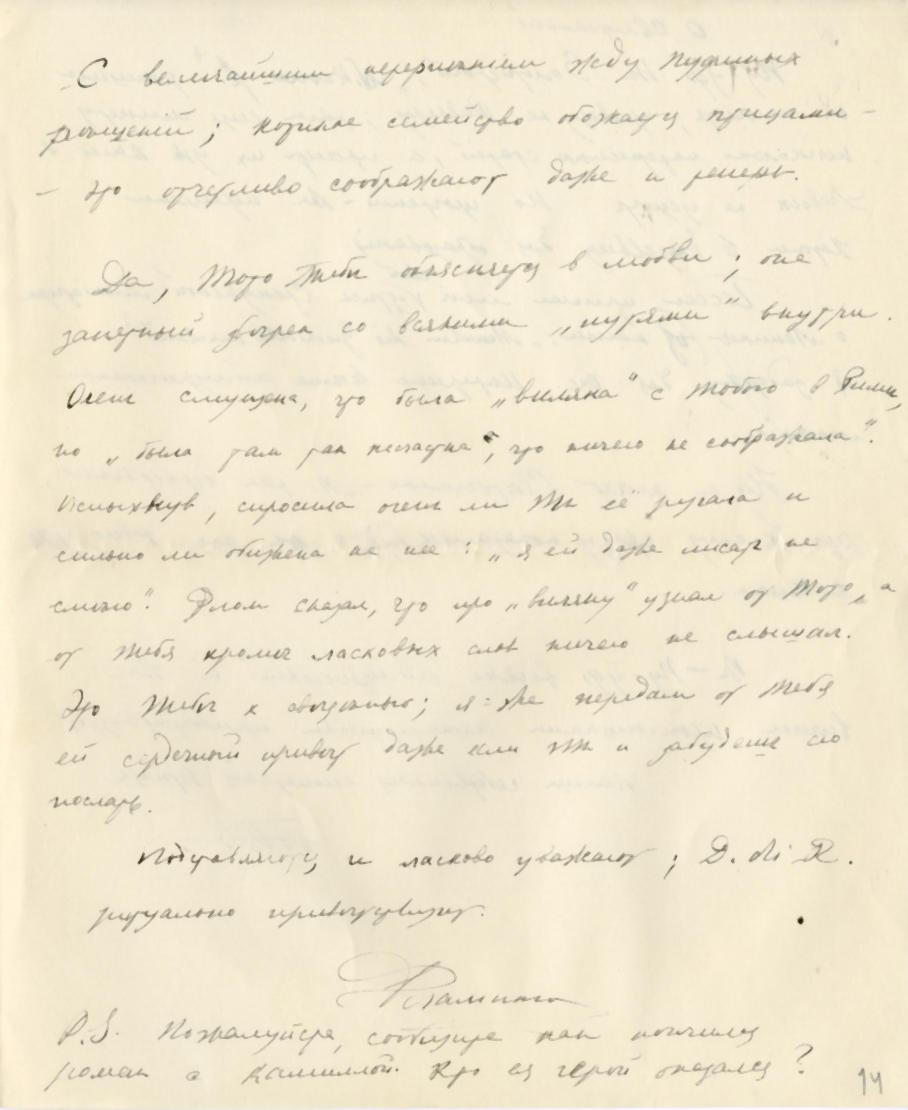 С величайшим нетерпением жду пузинных
рощений; котиное семейство обожается птицами —
— это отчетливо соображают даже и
Да, Тото Тебе объясняется в любви; она
запертый со всякими „путями“ внутри.
Очень смущена, что была „виляна“ с Тобою в Риме,
но „была там так несчастна, что ничего не соображала“.
Вспыхнув, спросила очень ли Ты её ругала и
сильно ли обижена на нее: „я ей даже писать не
смею“. Я сказал, что про „виляну“ узнал от Тото, а
от Тебя кроме ласковых слов ничего не слышал.
Это Тебе к сведению; я-же передам от Тебя
ей сердечный привет даже если Ты и забудешь его
послать.
и ласково уважают; D. di R.
ритуально приветствует.
P.S. Пожалуйста, сообщите как кончился
роман с Камиллой. Кто ея герой оказался?
14